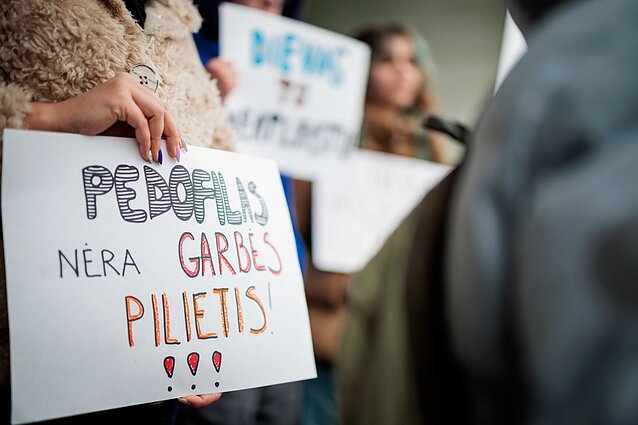 PEDOFILAS
NĖRA GARBĖS
PILIETIS!
!!!
DIEVAS
TU